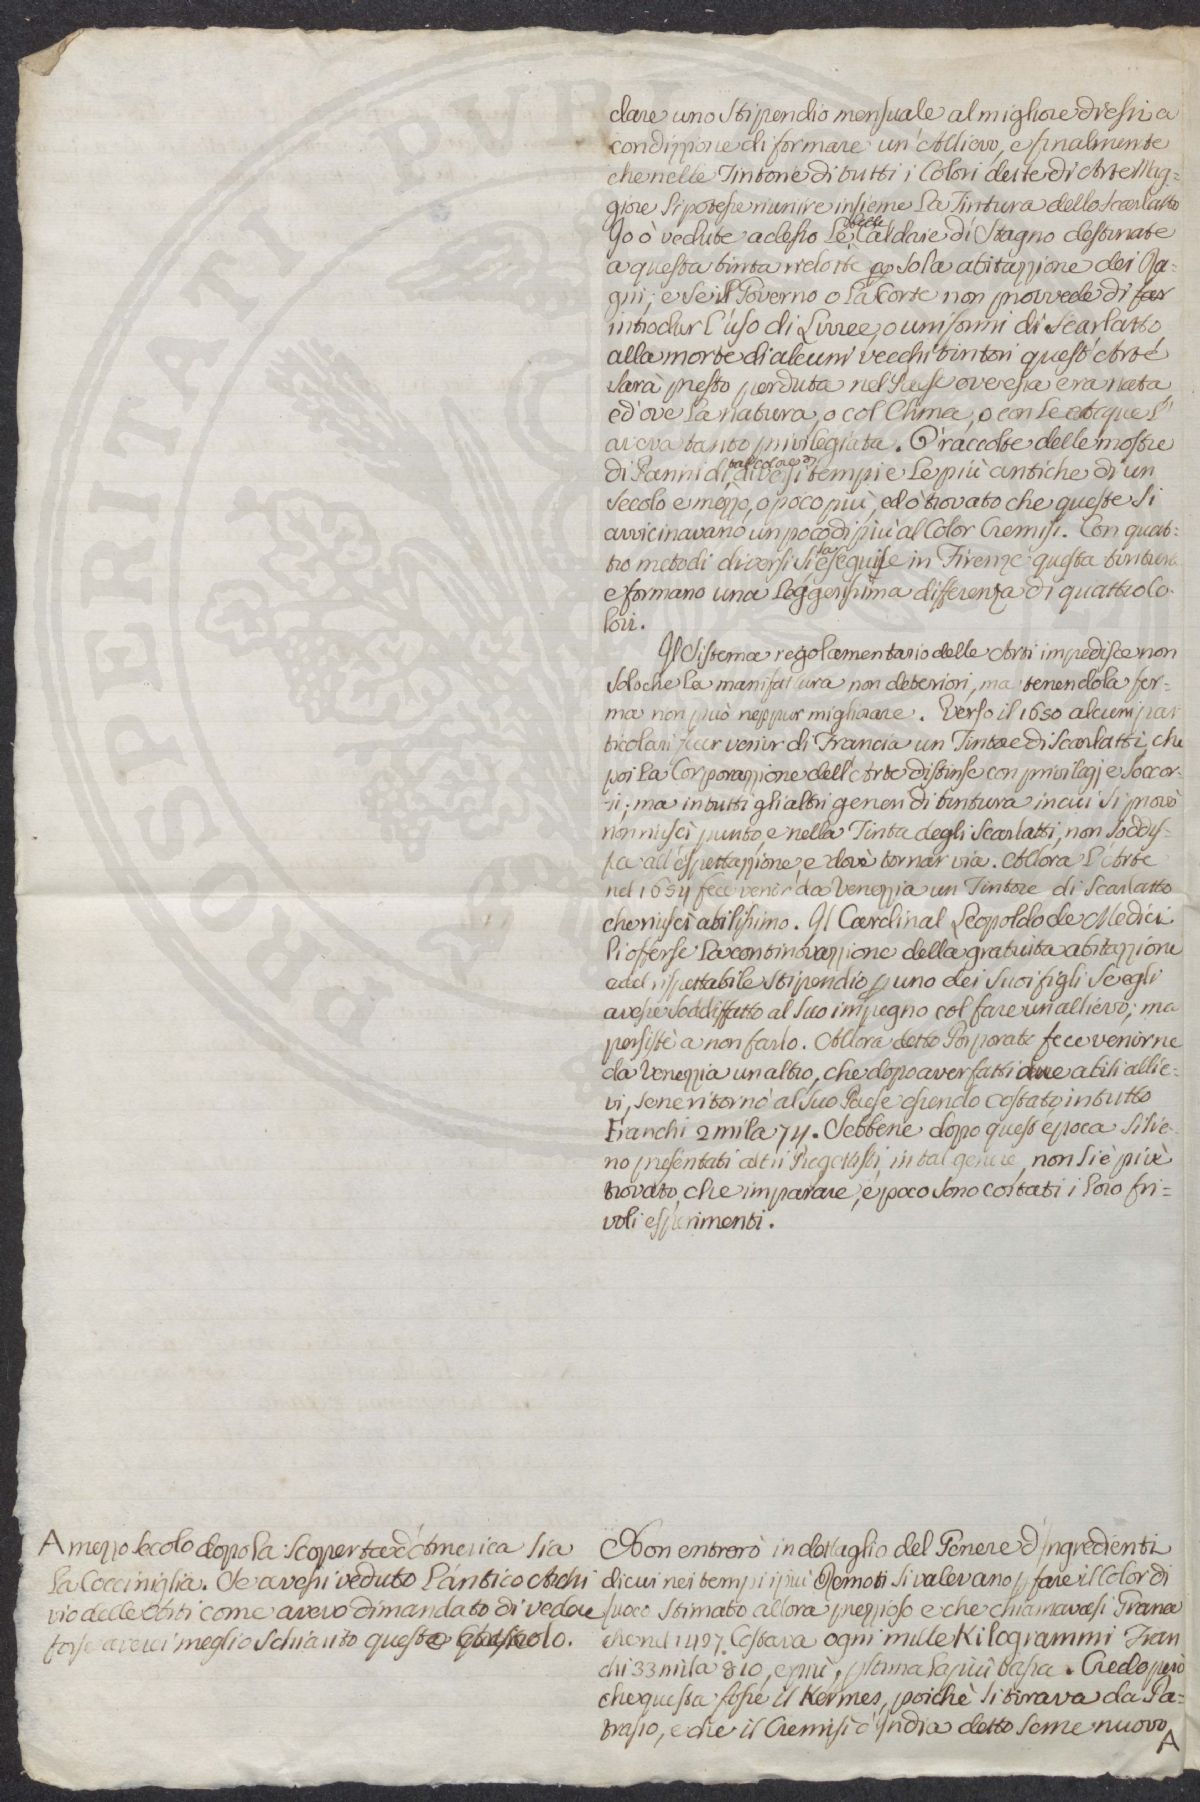 dare uno Stipendio mensuale al migliore d'essi a
condizzione di formare un'Allievo, e finalmente
che nelle Tintorie di tutti i Colori dette di Arte Mag=
giore si potesse riunire insieme la Tintura dello Scarlatto
Io ò vedute adesso le belle Caldaie di Stagno destinate
a questa tinta ridotte p sola abitazzione dei Ra=
gni; e se il Governo o la Corte non provvede di far
introdur l'uso di Livree, o uniformi di Scarlatto
alla morte di alcuni vecchi tintori quest'Arte
sarà presto perduta nel Paese ove essa era nata
ed ove la natura, o col Clima, o con le acque l'
aveva tanto privilegiata. Ò raccolte delle mostre
di Panni di tal colore di diversi tempi e le più antiche di un
secolo e mezzo, o poco più, ed ò trovato che queste si
avvicinavano un poco di più al Color Cremisi. Con quat=
tro metodi diversi si eseguisse in Firenze questa tintura
e formano una leggerissima differenza di quattro Co=
lori.
Il Sistema regolamentario delle Arti impedisce non
solo che la manifattura non deteriori, ma tenendola fer=
ma non può neppur migliorare. Verso il 1650 alcuni par
ticolari fecer venir di Francia un Tintore di Scarlatti, che
poi la Corporazzione dell'Arte distinse con privilegj e soccor=
si; ma in tutti gli altri generi di tintura in cui si provò
non riuscì punto, e nella Tinta degli Scarlatti, non soddis=
fece all'espettazzione, e dovè tornar via. Allora l'Arte
nel 1654 fece venir da Venezzia un Tintore di Scarlatto
che riuscì abilissimo. Il Cardinal Leopoldo de Medici
li offerse la continovazzione della gratuita abitazzione
e del rispettabile stipendio p uno dei suoi figli se egli
avesse soddisfatto al suo impegno col fare un allievo; ma
persistè a non farlo. Allora detto Porporato fece venirne
da Venezzia un altro, che dopo aver fatti due abili allie=
vi, se ne ritornò al suo Paese essendo costato in tutto
Franchi 2 mila 74. Sebbene dopo quest'epoca si sie=
no presentati altri Progettisti in tal genere, non si è più
trovato, che imparare, e poco sono costati i loro fri=
voli esperimenti.
Non entrerò in dettaglio del Genere d'Ingredienti
di cui nei tempi i più Remoti si valevano p fare il Color di
fuoco stimato allora prezzioso e che chiamavasi Grana
che nel 1427. Costava ogni mille Kilogrammi Fran
chi 33 mila 810, e più, p stima la più bassa. Credo però
che questa fosse il Kermes, poichè si tirava da Pa=
trasso, e che il Cremisi d'India detto seme nuovo
A
A mezzo secolo dopo la Scoperta d'America sia
la Cocciniglia. Se avessi veduto l'antico Archi
vio delle Arti come avevo dimandato di vedere
forse averei meglio schiarito questo Articolo.